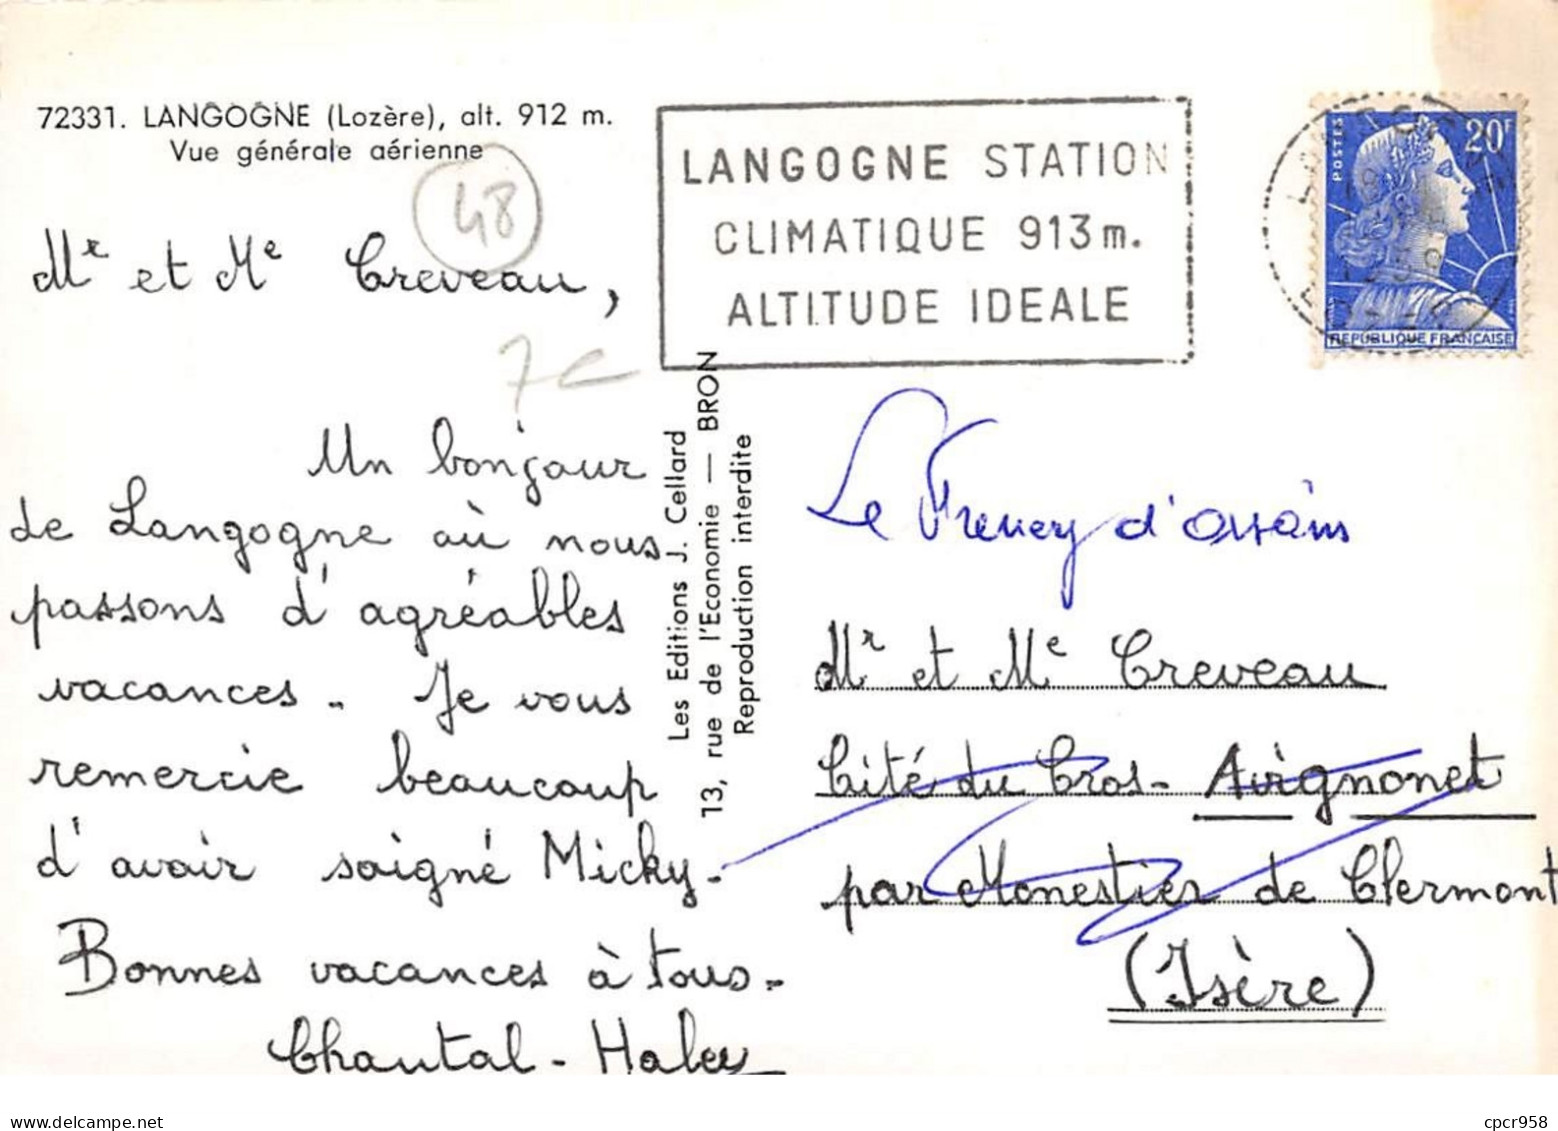 72331. LANGOGNE (Lozère), alt. 912 m.
Vue générale aérienne
48
Mr et Me Creveau,
7€
Un bonjour
de Langogne où nous
passons d'agréables
vacances. Je vous
remercie beaucoup
d'avoir soigné Micky.
Bonnes vacances à tous.
Chantal - 
Les Editions J. Cellard
13, rue de l'Economie — BRON
Reproduction interdite
LANGOGNE STATION
CLIMATIQUE 913m.
ALTITUDE IDEALE
POSTES
20F
REPUBLIQUE FRANÇAISE
Le Freney d'Oisans
Mr et Me Creveau
Cité du Cros - Avignonet
par Monestier de Clermont
(Isère)
delcampe.net
cpcr958